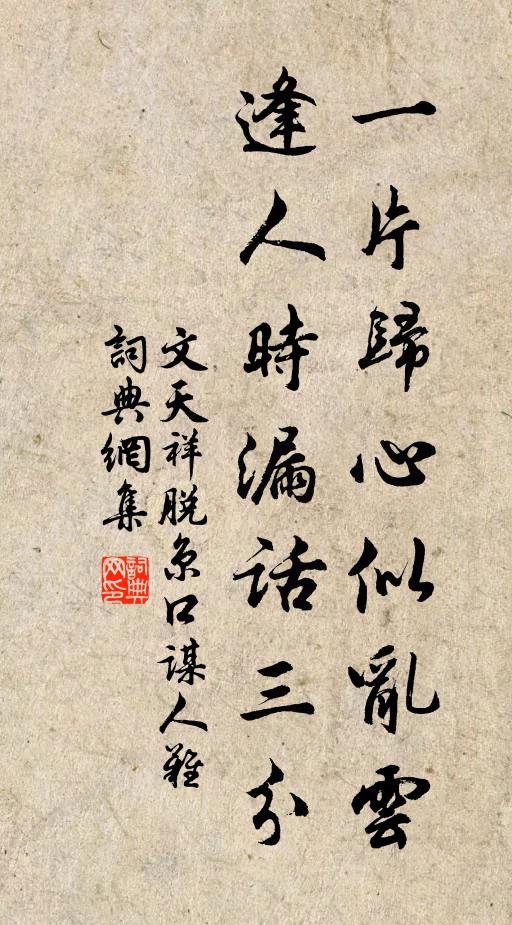 一片歸心似亂雲
逢人時漏話三分
文天祥脫京口謀人難
詞典網集
詞典網印